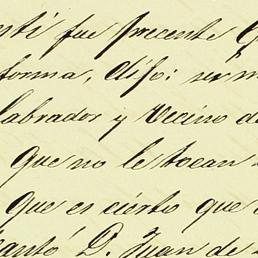 fue presente
forma, dijo:
labrador y Vecino de
que no le tocan
que es cierto que
D. Juan de